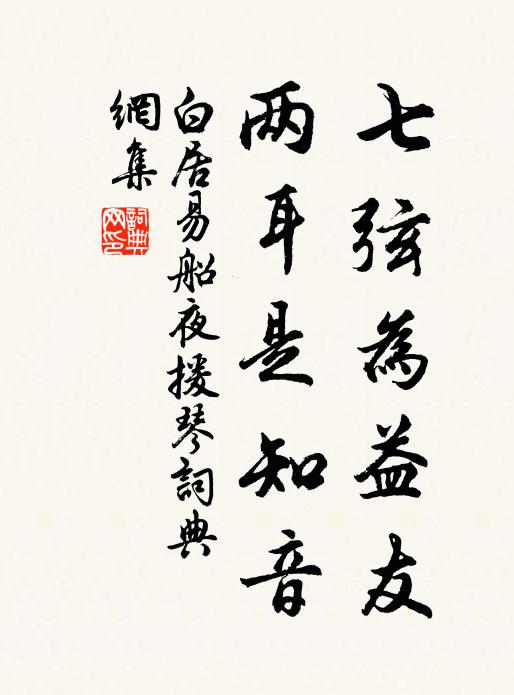 七弦為益友
两耳是知音
白居易船夜援琴詞典
網集
詞典網印